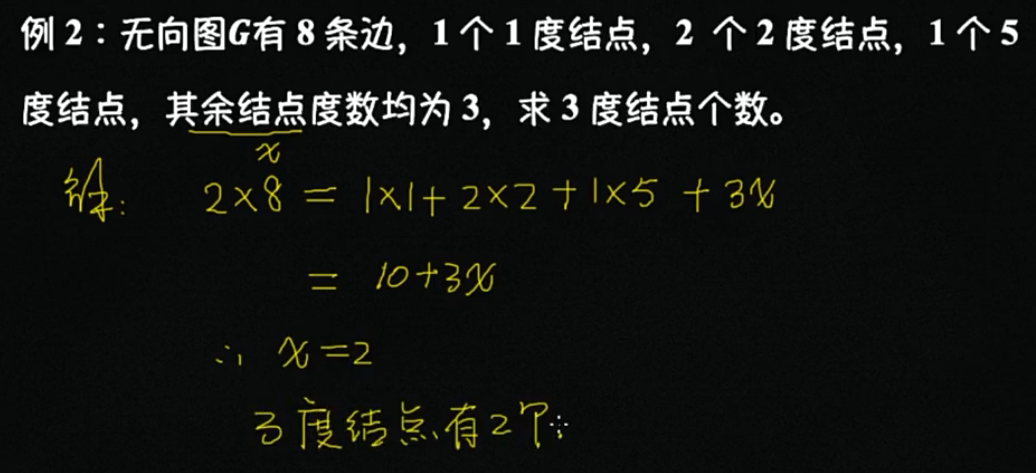 例2：无向图G有8条边，1个1度结点，2个2度结点，1个5
度结点，其余结点度数均为3，求3度结点个数。
x
解: 2×8 = 1×1+2×2+1×5+3x
= 10+3x
∴ x=2
3度结点有2个